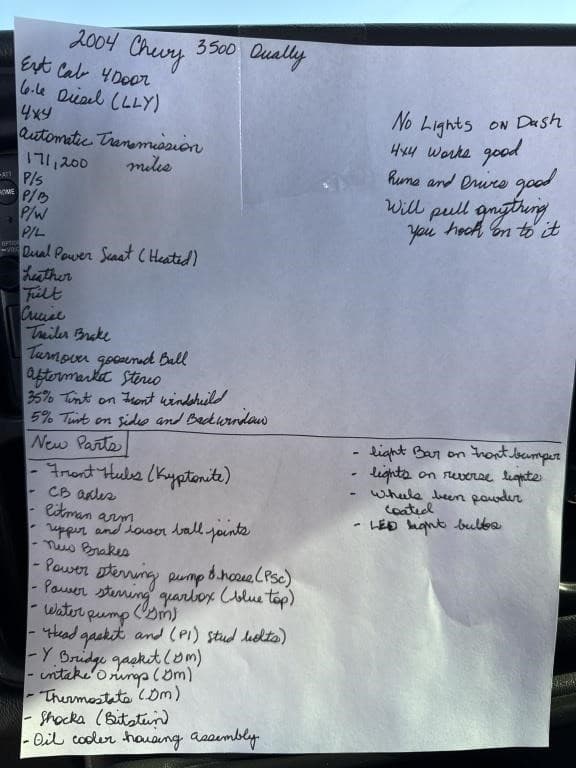 2004 Chevy 3500 Dually
Ext Cab 4Door
6.6 Diesel (LLY)
4x4
Automatic Transmission
171,200 miles
P/S
P/B
P/W
P/L
Dual Power Seat (Heated)
Leather
Tilt
Cruise
Trailer Brake
Turnover gooseneck Ball
Aftermarket Stereo
35% Tint on Front windshield
5% Tint on sides and Back window
No Lights on Dash
4x4 works good
Runs and Drives good
Will pull anything
you hook on to it
New Parts
- Front Hubs (Kryptonite)
- CB axles
- Pitman arm
- upper and lower ball joints
- New Brakes
- Power sterring pump & hoses (PSC)
- Power sterring gearbox (blue top)
- Water pump (DM)
- Head gasket and (PI) stud bolts)
- Y Bridge gasket (DM)
- intake O rings (DM)
- Thermostats (DM)
- Shocks (Bilstein)
- Oil cooler housing assembly
- light Bar on Front bumper
- lights on reverse lights
- wheels been powder
coated
- LED light bulbs